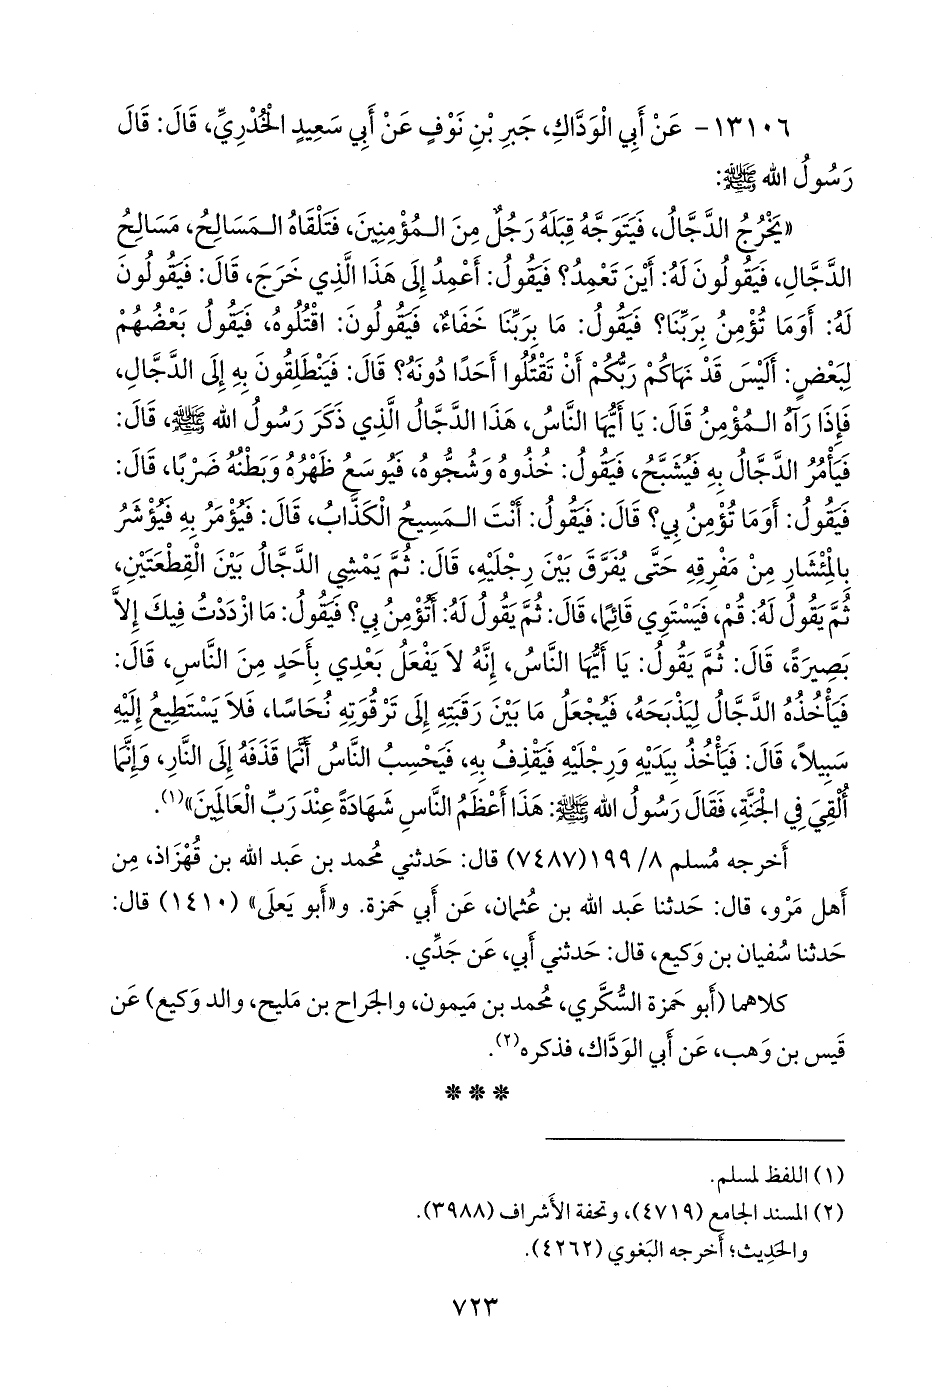 ١٣١٠٦- عَنْ أَبِي الْوَدَّاكِ، جَبرِ بْنِ نَوْفٍ عَنْ أَبِي سَعِيدٍ الْخُدْرِيِّ، قَالَ: قَالَ
رَسُولُ الله ﷺ:
«يَخْرُجُ الدَّجَّالُ، فَيَتَوَجَّهُ قِبَلَهُ رَجُلٌ مِنَ الـمُؤْمِنِينَ، فَتَلْقَاهُ الـمَسَالِحُ، مَسَالِحُ
الدَّجَّالِ، فَيَقُولُونَ لَهُ: أَيْنَ تَعْمِدُ؟ فَيَقُولُ: أَعْمِدُ إِلَى هَذَا الَّذِي خَرَجَ، قَالَ: فَيَقُولُونَ
لَهُ: أَوَمَا تُؤْمِنُ بِرَبِّنَا؟ فَيَقُولُ: مَا بِرَبِّنَا خَفَاءٌ، فَيَقُولُونَ: اقْتُلُوهُ، فَيَقُولُ بَعْضُهُمْ
لِبَعْضٍ: أَلَيْسَ قَدْ نَهَاكُمْ رَبُّكُمْ أَنْ تَقْتُلُوا أَحَدًا دُونَهُ؟ قَالَ: فَيَنْطَلِقُونَ بِهِ إِلَى الدَّجَّالِ،
فَإِذَا رَآهُ الـمُؤْمِنُ قَالَ: يَا أَيُّهَا النَّاسُ، هَذَا الدَّجَّالُ الَّذِي ذَكَرَ رَسُولُ الله ﷺ، قَالَ:
فَيَأْمُرُ الدَّجَّالُ بِهِ فَيُشَبَّحُ، فَيَقُولُ: خُذُوهُ وَشُجُّوهُ، فَيُوسَعُ ظَهْرُهُ وَبَطْنُهُ ضَرْبًا، قَالَ:
فَيَقُولُ: أَوَمَا تُؤْمِنُ بِي؟ قَالَ: فَيَقُولُ: أَنْتَ الـمَسِيحُ الْكَذَّابُ، قَالَ: فَيُؤْمَرُ بِهِ فَيُؤْشَرُ
بِالْمِئْشَارِ مِنْ مَفْرِقِهِ حَتَّى يُفَرَّقَ بَيْنَ رِجْلَيْهِ، قَالَ: ثُمَّ يَمْشِي الدَّجَّالُ بَيْنَ الْقِطْعَتَيْنِ،
ثُمَّ يَقُولُ لَهُ: قُمْ، فَيَسْتَوِي قَائِمًا، قَالَ: ثُمَّ يَقُولُ لَهُ: أَتُؤْمِنُ بِي؟ فَيَقُولُ: مَا ازْدَدْتُ فِيكَ إِلاَّ
بَصِيرَةً، قَالَ: ثُمَّ يَقُولُ: يَا أَيُّهَا النَّاسُ، إِنَّهُ لاَ يَفْعَلُ بَعْدِي بِأَحَدٍ مِنَ النَّاسِ، قَالَ:
فَيَأْخُذُهُ الدَّجَّالُ لِيَذْبَحَهُ، فَيُجْعَلُ مَا بَيْنَ رَقَبَتِهِ إِلَى تَرْقُوَتِهِ نُحَاسًا، فَلاَ يَسْتَطِيعُ إِلَيْهِ
سَبِيلاً، قَالَ: فَيَأْخُذُ بِيَدَيْهِ وَرِجْلَيْهِ فَيَقْذِفُ بِهِ، فَيَحْسِبُ النَّاسُ أَنَّمَا قَذَفَهُ إِلَى النَّارِ، وَإِنَّمَا
أُلْقِيَ فِي الْجَنَّةِ، فَقَالَ رَسُولُ الله ﷺ: هَذَا أَعْظَمُ النَّاسِ شَهَادَةً عِنْدَ رَبِّ الْعَالَمِينَ»(١).
أَخرجه مُسلم ٨/ ١٩٩(٧٤٨٧) قال: حَدثني مُحمد بن عَبد الله بن قُهْزاذ، مِن
أَهل مَرْو، قال: حَدثنا عَبد الله بن عُثمان، عَن أَبي حَمزة. و«أَبو يَعلَى» (١٤١٠) قال:
حَدثنا سُفيان بن وَكيع، قال: حَدثني أَبي، عَن جَدِّي.
كلاهما (أَبو حَمزة السُّكَّري، مُحمد بن مَيمون، والجَراح بن مَليح، والد وَكيع) عَن
قَيس بن وَهب، عَن أَبي الوَدَّاك، فذكره(٢).
* * *
(١) اللفظ لمسلم.
(٢) المسند الجامع (٤٧١٩)، وتحفة الأَشراف (٣٩٨٨).
والحَدِيث؛ أَخرجه البَغوي (٤٢٦٢).
٧٢٣